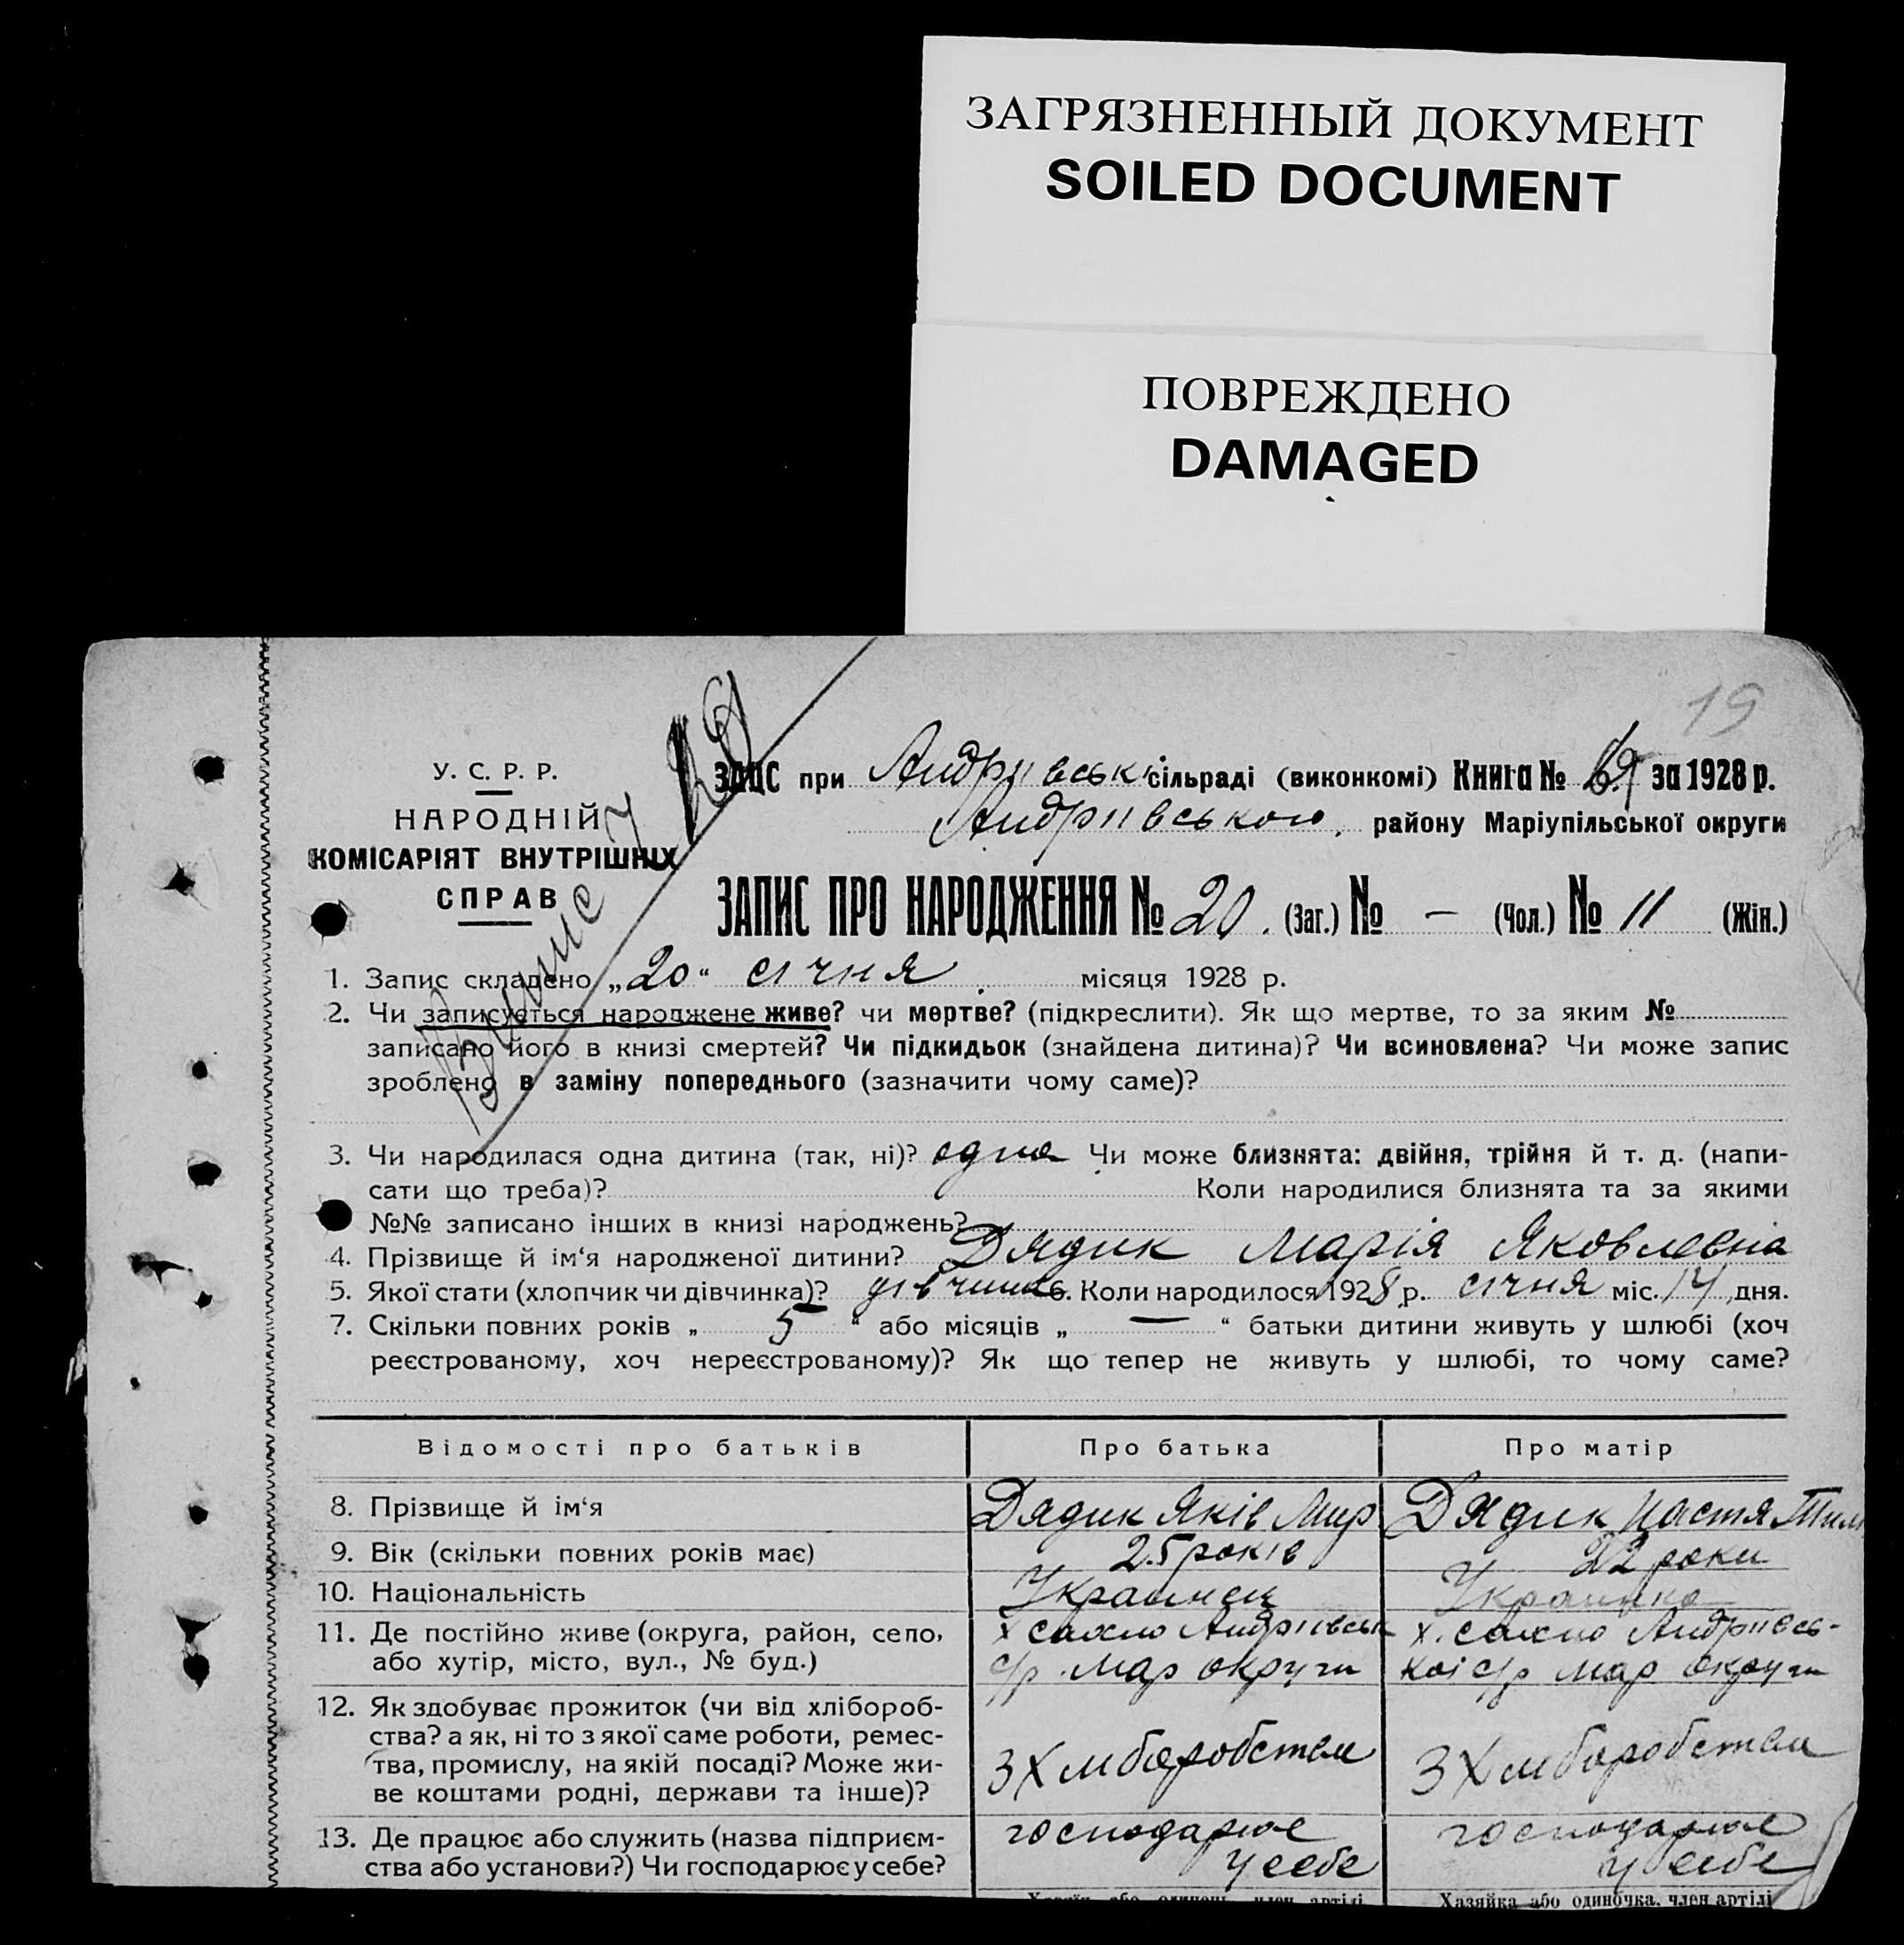 ЗАГРЯЗНЕННЫЙ ДОКУМЕНТ
SOILED DOCUMENT
ПОВРЕЖДЕНО
DAMAGED
19
У. С. Р. Р.
НАРОДНІЙ
КОМІСАРІЯТ ВНУТРІШНІХ
СПРАВ
ЗАЦС при Андріївськ сільраді (виконкомі) Книга № за 1928 р.
Андріївського району Маріупільської округи
ЗАПИС ПРО НАРОДЖЕННЯ № 20. (Заг.) № — (Чол.) № 11 (Жін.)
1. Запис складено „20“ січня місяця 1928 р.
2. Чи записується народжене живе? чи мертве? (підкреслити). Як що мертве, то за яким №
записано його в книзі смертей? Чи підкидьок (знайдена дитина)? Чи всиновлена? Чи може запис
зроблено в заміну попереднього (зазначити чому саме)?
3. Чи народилася одна дитина (так, ні)? одна Чи може близнята: двійня, трійня й т. д. (напи-
сати що треба)? Коли народилися близнята та за якими
№№ записано інших в книзі народжень?
4. Прізвище й ім‘я народженої дитини? Дядик Марія Яковлевна
5. Якої стати (хлопчик чи дівчинка)? дівчинк 6. Коли народилося 1928 р. січня міс. 14 дня.
7. Скільки повних років „ 5 “ або місяців „ — “ батьки дитини живуть у шлюбі (хоч
реєстрованому, хоч нереєстрованому)? Як що тепер не живуть у шлюбі, то чому саме?
Відомості про батьків Про батька Про матір
8. Прізвище й ім‘я Дядик Яків Мир Дядик Настя Тим
9. Вік (скільки повних років має) 25 років 22 роки
10. Національність Украинец Украинка
11. Де постійно живе (округа, район, село, х Сахно Андріівськ х. Сахно Андріівсь-
або хутір, місто, вул., № буд.) с/р. Мар округи коі с/р Мар округи
12. Як здобуває прожиток (чи від хлібороб-
ства? а як, ні то з якої саме роботи, ремес-
тва, промислу, на якій посаді? Може жи- З Хліборобством З Хліборобства
ве коштами родні, держави та інше)?
13. Де працює або служить (назва підприєм- господарює господарює
ства або установи?) Чи господарює у себе? у себе у себе
Хазяїн або одинець, член артілі Хазяйка або одиночка, член артілі